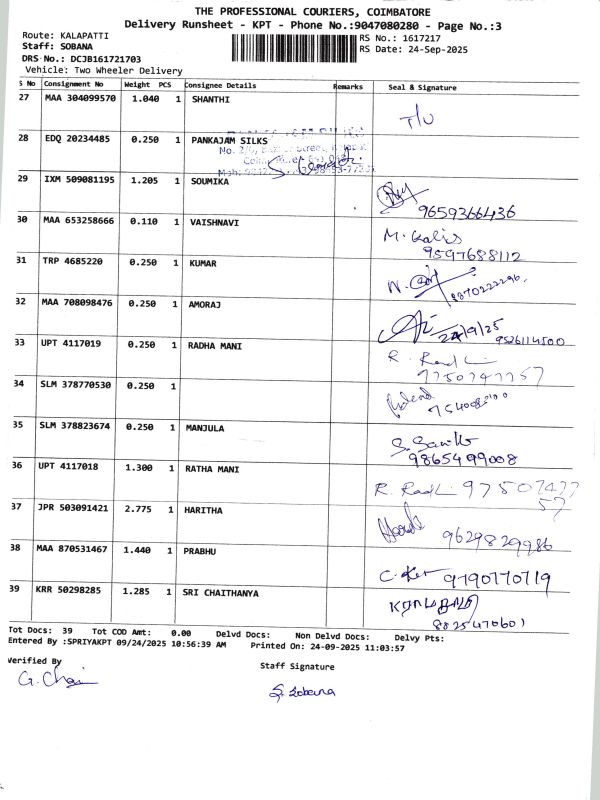 THE PROFESSIONAL COURIERS, COIMBATORE
Delivery Runsheet - KPT - Phone No.:9047080280 - Page No.:3
Route: KALAPATTI
RS No.: 1617217
Staff: SOBANA
RS Date: 24-Sep-2025
DRS No.: DCJB161721703
Vehicle: Two Wheeler Delivery
S No Consignment No Weight PCS Consignee Details Remarks Seal & Signature
27 MAA 304099570 1.040 1 SHANTHI T/U
28 EDQ 20234485 0.250 1 PANKAJAM SILKS
29 IXM 509081195 1.205 1 SOUMIKA 9659366436
30 MAA 653258666 0.110 1 VAISHNAVI M. Kalis
9597688112
31 TRP 4685220 0.250 1 KUMAR 8870222296
32 MAA 708098476 0.250 1 AMORAJ 24/9/25 9526114500
33 UPT 4117019 0.250 1 RADHA MANI
34 SLM 378770530 0.250 1
35 SLM 378823674 0.250 1 MANJULA
9865499008
36 UPT 4117018 1.300 1 RATHA MANI
37 JPR 503091421 2.775 1 HARITHA 9629829986
38 MAA 870531467 1.440 1 PRABHU 9790770719
39 KRR 50298285 1.285 1 SRI CHAITHANYA
8825470601
Tot Docs: 39 Tot COD Amt: 0.00 Delvd Docs: Non Delvd Docs: Delvy Pts:
Entered By :SPRIYAKPT 09/24/2025 10:56:39 AM Printed On: 24-09-2025 11:03:57
Verified By
Staff Signature
S. Sobana